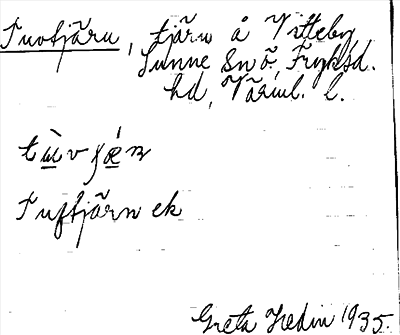 Tvotjärn, tjärn å Vitteby
Sunne sn ö, Fryksd.
hd, Värml. l.
Tuftjärn ek
Greta Hedin 1935.